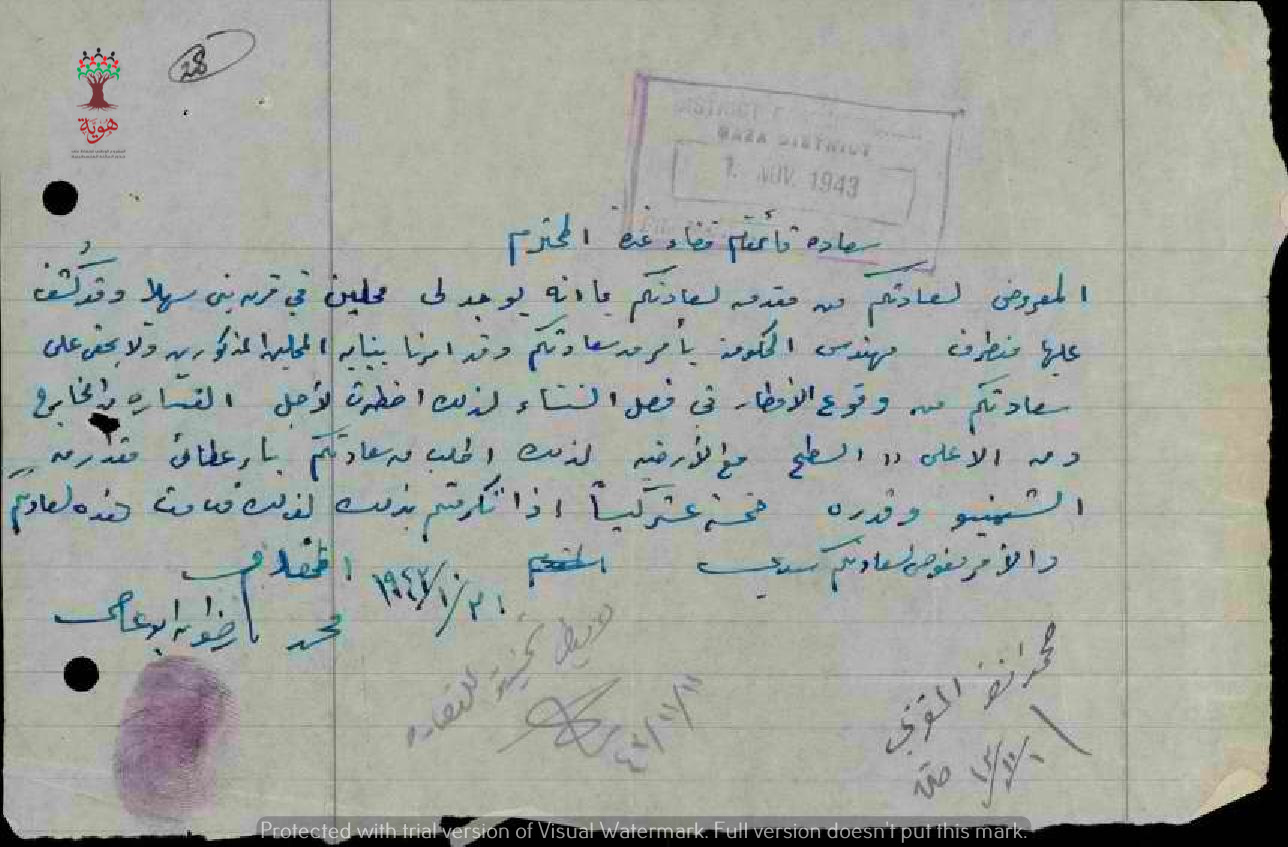 28
هوية
DISTRICT
GAZA DISTRICT
1. NOV. 1943
سعادة قائمقام قضاء غزة المحترم
المعروض لسعادتكم من مقدمه لسعادتكم بما انه يوجد لي محلين في قرية بني سهيلا وقد كشف
عليها مهندس الحكومة بأمر من سعادتكم وقد امرنا ببنايه المحلين المذكورين ولا يخفى على
سعادتكم من وقوع الامطار في فصل الشتاء لذلك اضطرت لأجل القساره من الخارج
ومن الاعلى السطح مع الأرضيه لذلك اطلب من سعادتكم بأن عطائي مقدار من
الشمينتو وقدره خمسة عشر كيساً اذا تكرمتم بذلك لذلك قدمت هذه لسعادتكم
والأمر مفوض لسعادتكم سيدي
٣١/١٠/١٩٤٣
محمد رضوان ابو عاصي
للقصاره
١١/١١/٤٣
محمد
Protected with trial version of Visual Watermark. Full version doesn't put this mark.